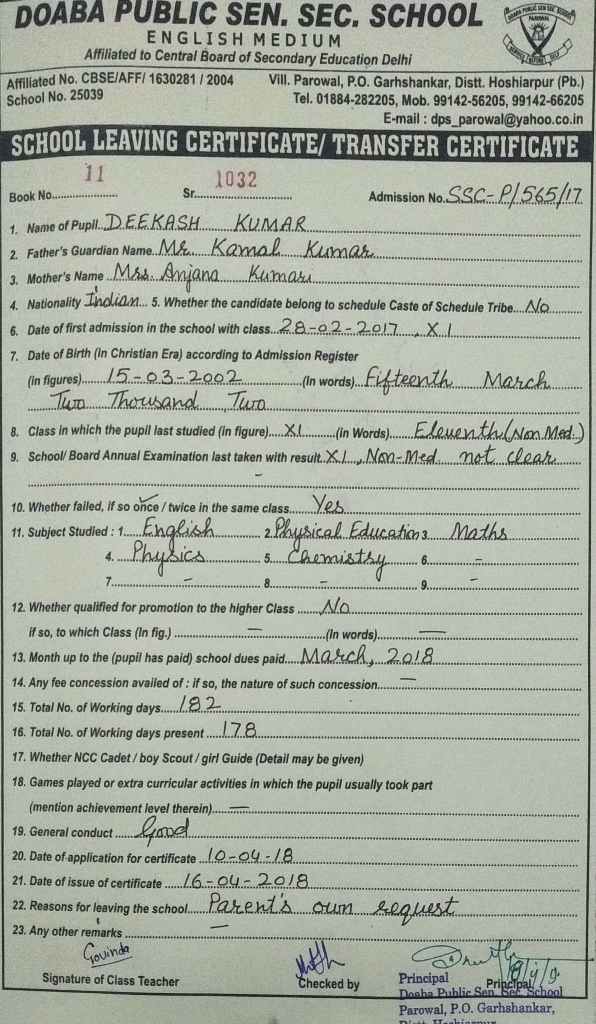 DOABA PUBLIC SEN. SEC. SCHOOL
ENGLISH MEDIUM
Affiliated to Central Board of Secondary Education Delhi
DOABA PUBLIC SEN. SEC. SCHOOL
PAROWAL
Affiliated No. CBSE/AFF/ 1630281 / 2004 Vill. Parowal, P.O. Garhshankar, Distt. Hoshiarpur (Pb.)
School No. 25039 Tel. 01884-282205, Mob. 99142-56205, 99142-66205
E-mail : dps_parowal@yahoo.co.in
SCHOOL LEAVING CERTIFICATE/ TRANSFER CERTIFICATE
Book No. 11 Sr. 1032 Admission No. SSC-P/565/17
1. Name of Pupil DEEKASH KUMAR
2. Father's Guardian Name Mr. Kamal Kumar
3. Mother's Name Mrs. Anjana Kumari
4. Nationality Indian 5. Whether the candidate belong to schedule Caste of Schedule Tribe No
6. Date of first admission in the school with class 28-02-2017, XI
7. Date of Birth (in Christian Era) according to Admission Register
(in figures) 15-03-2002 (In words) Fifteenth March
Two Thousand Two
8. Class in which the pupil last studied (in figure) XI (in Words) Eleventh (Non Med.)
9. School/ Board Annual Examination last taken with result XI, Non-Med not clear
-
10. Whether failed, if so once / twice in the same class Yes
11. Subject Studied : 1. English 2. Physical Education 3. Maths
4. Physics 5. Chemistry 6. -
7. - 8. - 9. -
12. Whether qualified for promotion to the higher Class No
if so, to which Class (In fig.) — (In words) —
13. Month up to the (pupil has paid) school dues paid March, 2018
14. Any fee concession availed of : if so, the nature of such concession —
15. Total No. of Working days 182
16. Total No. of Working days present 178
17. Whether NCC Cadet / boy Scout / girl Guide (Detail may be given)
18. Games played or extra curricular activities in which the pupil usually took part
(mention achievement level therein) —
19. General conduct Good
20. Date of application for certificate 10-04-18
21. Date of issue of certificate 16-04-2018
22. Reasons for leaving the school Parent's own request
23. Any other remarks —
Govinda
Signature of Class Teacher Checked by Principal Principal
Doaba Public Sen. Sec. School
Parowal, P.O. Garhshankar,
Distt. Hoshiarpur